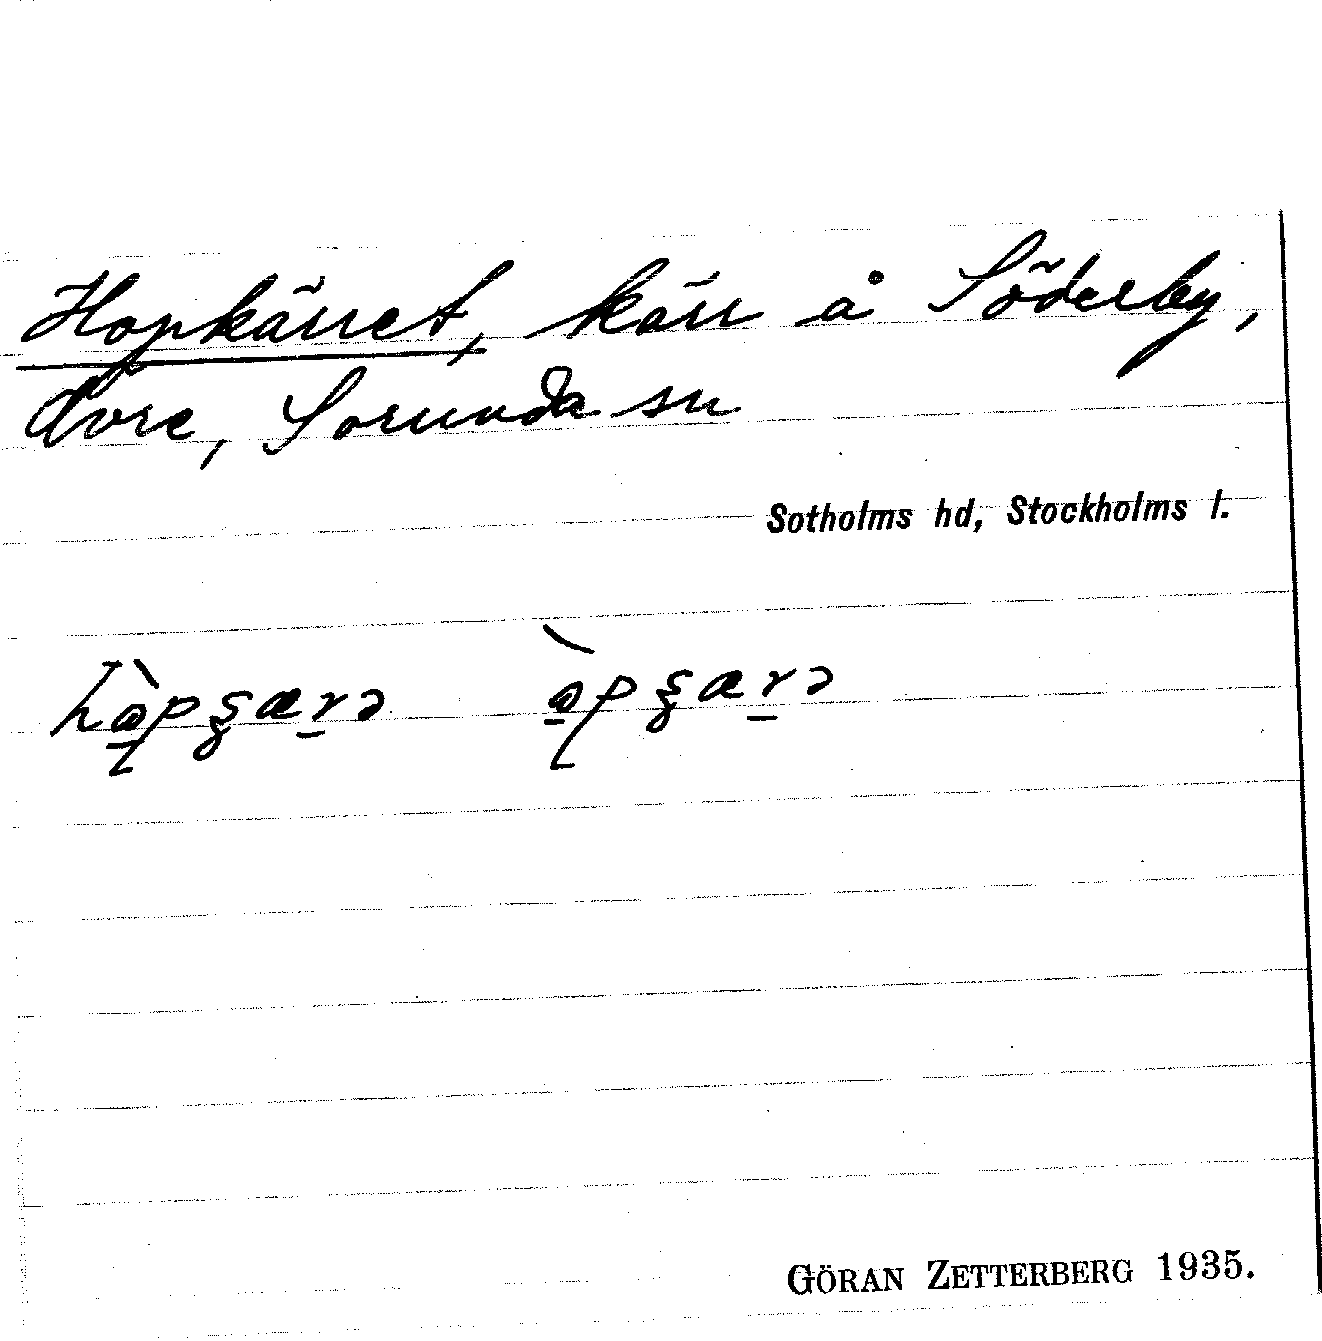 Hopkärret, kärr å Söderby,
Övre, Sorunda sn
Sotholms hd, Stockholms l.
GÖRAN ZETTERBERG 1935.